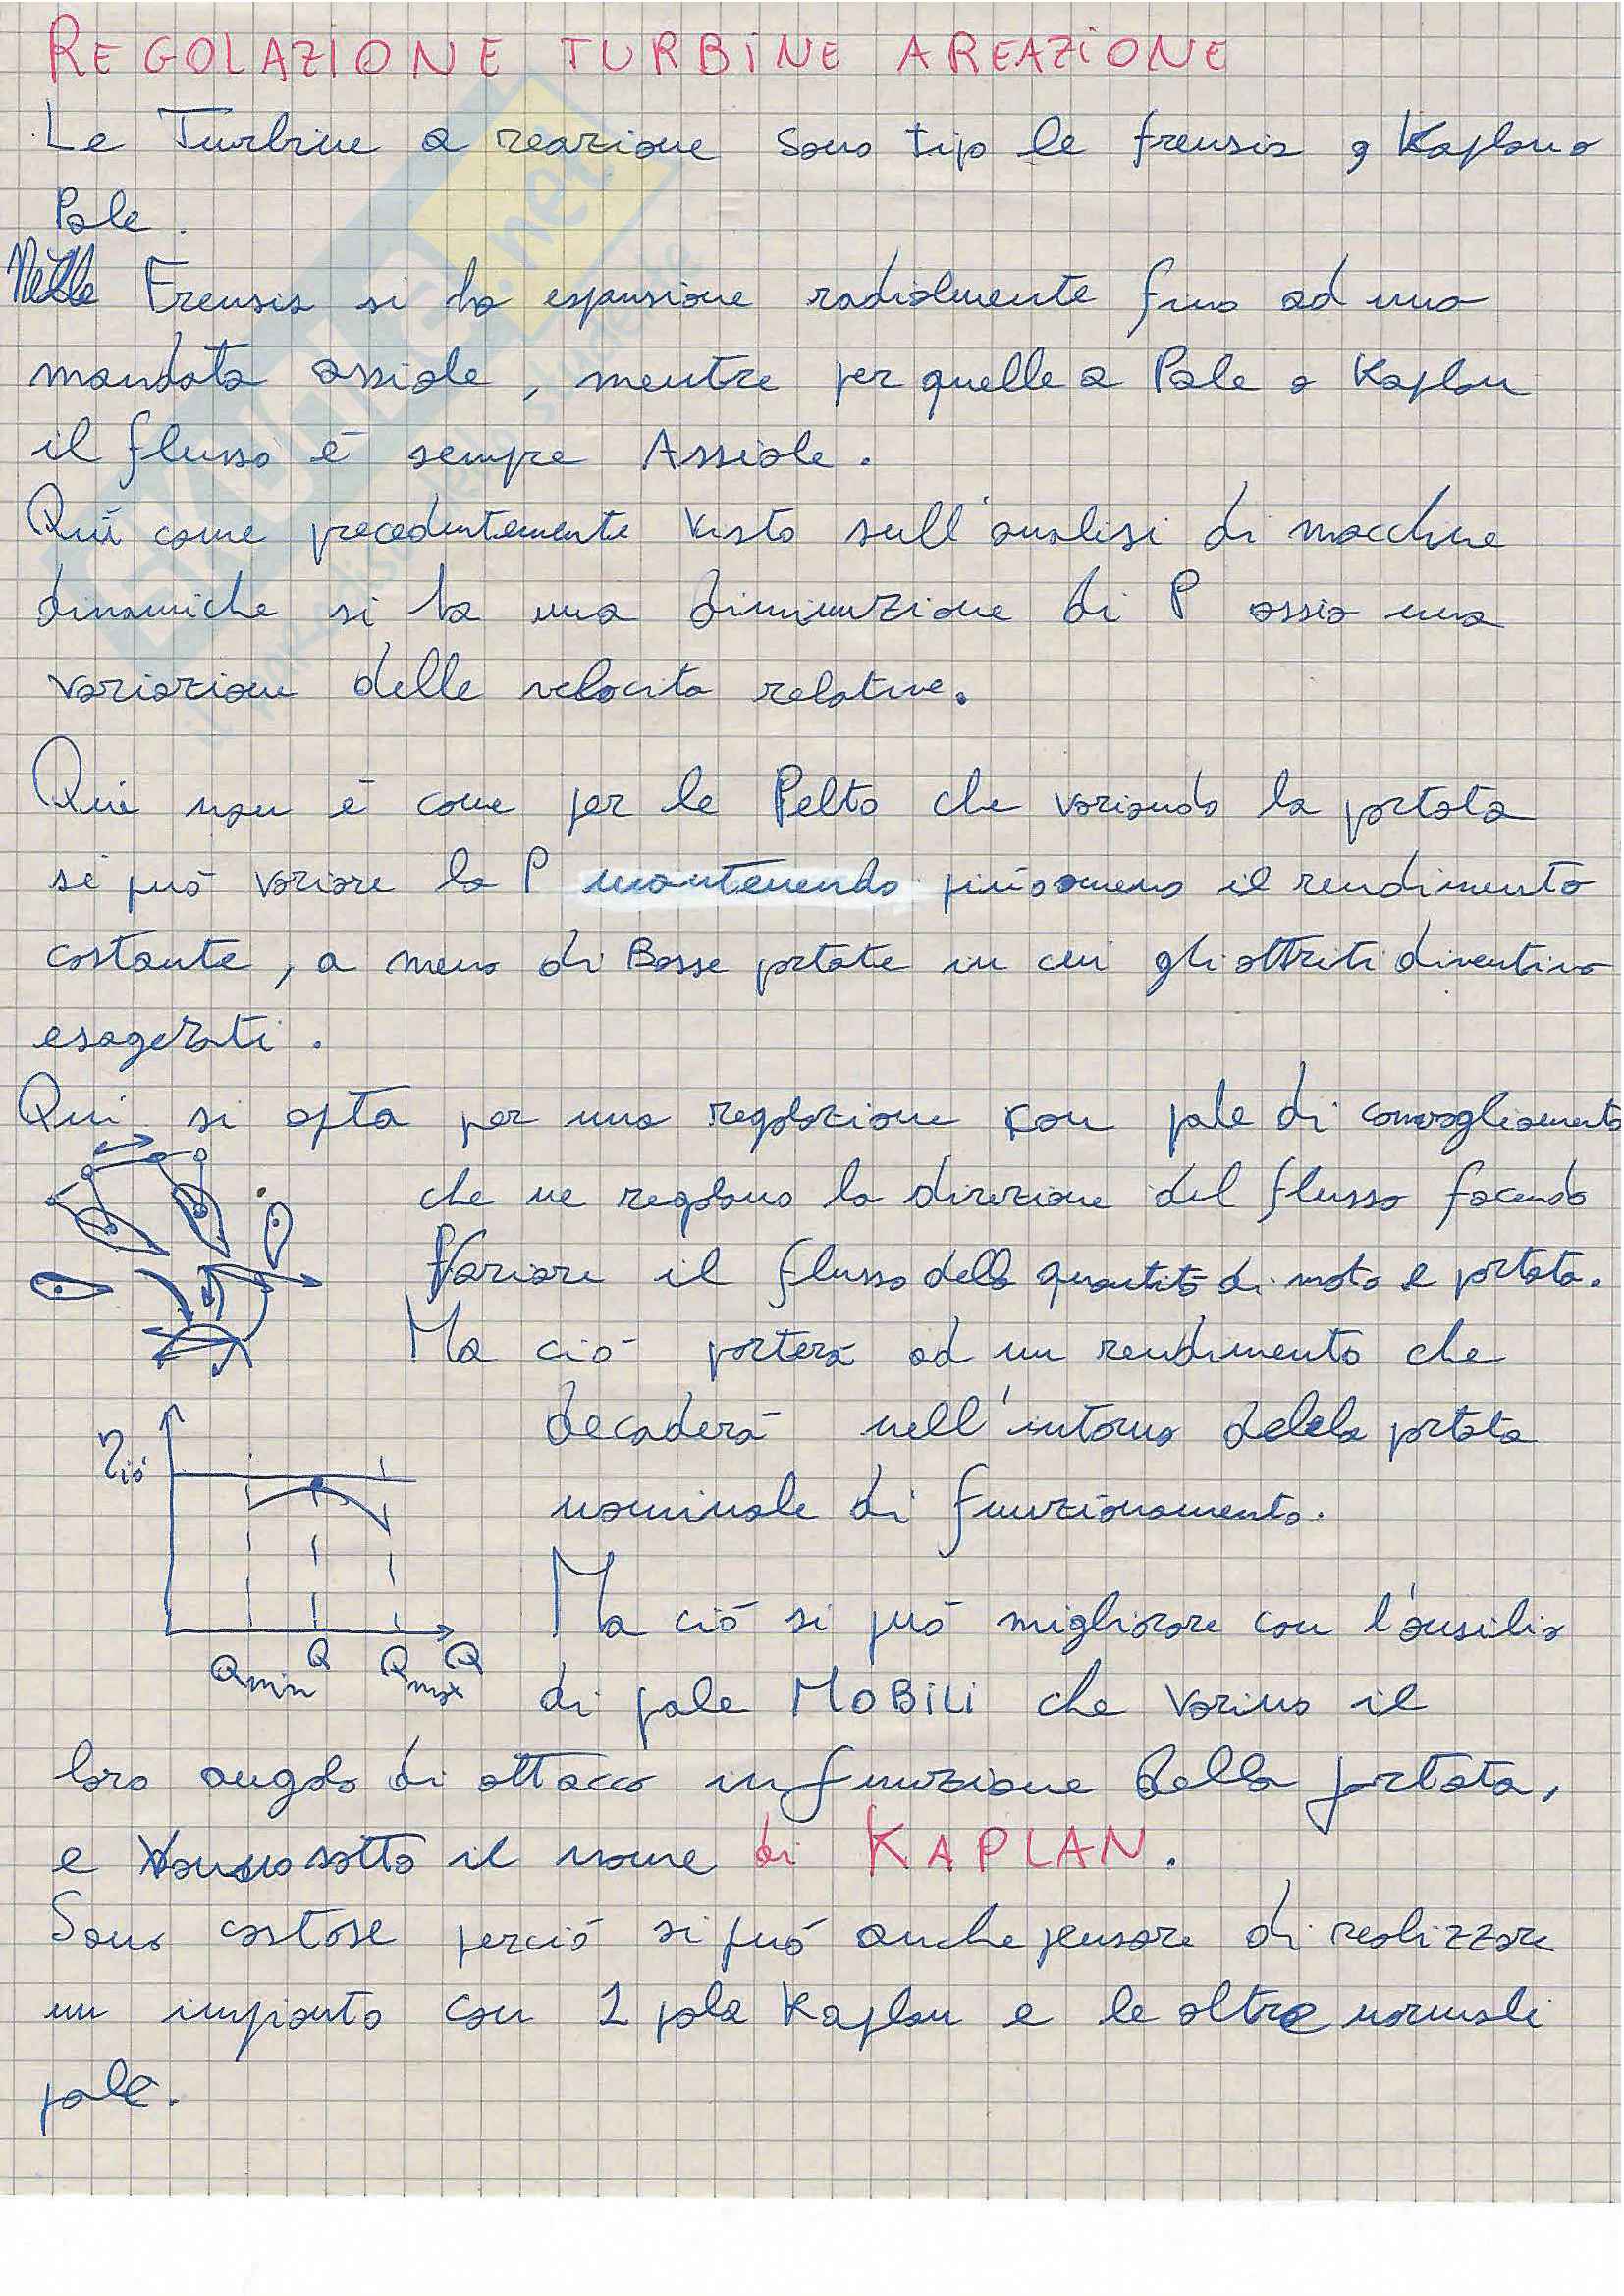 REGOLAZIONE TURBINE A REAZIONE
Le Turbine a reazione sono tipo le frensis, Kaplan o
Pale.
Nelle Frensis si ha espansione radialmente fino ad una
mandata assiale, mentre per quelle a Pale o Kaplan
il flusso è sempre Assiale.
Quì come precedentemente visto sull'analisi di macchine
dinamiche si ha una diminuzione di P ossia una
variazione delle velocità relative.
Qui non è come per le Pelto che variando la portata
si può variare la P mantenendo più o meno il rendimento
costante, a meno di Basse portate in cui gli attriti diventino
esagerati.
Qui si opta per una regolazione con pale di convogliamento
che ne regolano la direzione del flusso facendo
Variare il flusso della quantità di moto e portata.
Ma ciò porterà ad un rendimento che
decaderà nell'intorno della portata
ηio
nominale di funzionamento.
Ma ciò si può migliorare con l'ausilio
Qmin Q Qmax Q
di pale MOBILI che varino il
loro angolo di attacco in funzione della portata,
e vanno sotto il nome di KAPLAN.
Sono costose perciò si può anche pensare di realizzare
un impianto con 1 pala Kaplan e le altre normali
pale.